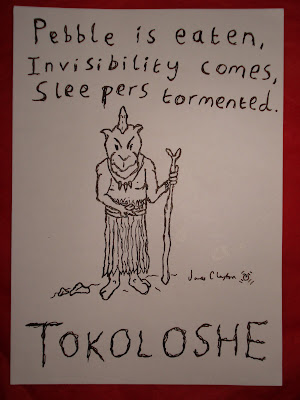 Pebble is eaten,
Invisibility comes,
Sleepers tormented.
James Clayton
TOKOLOSHE